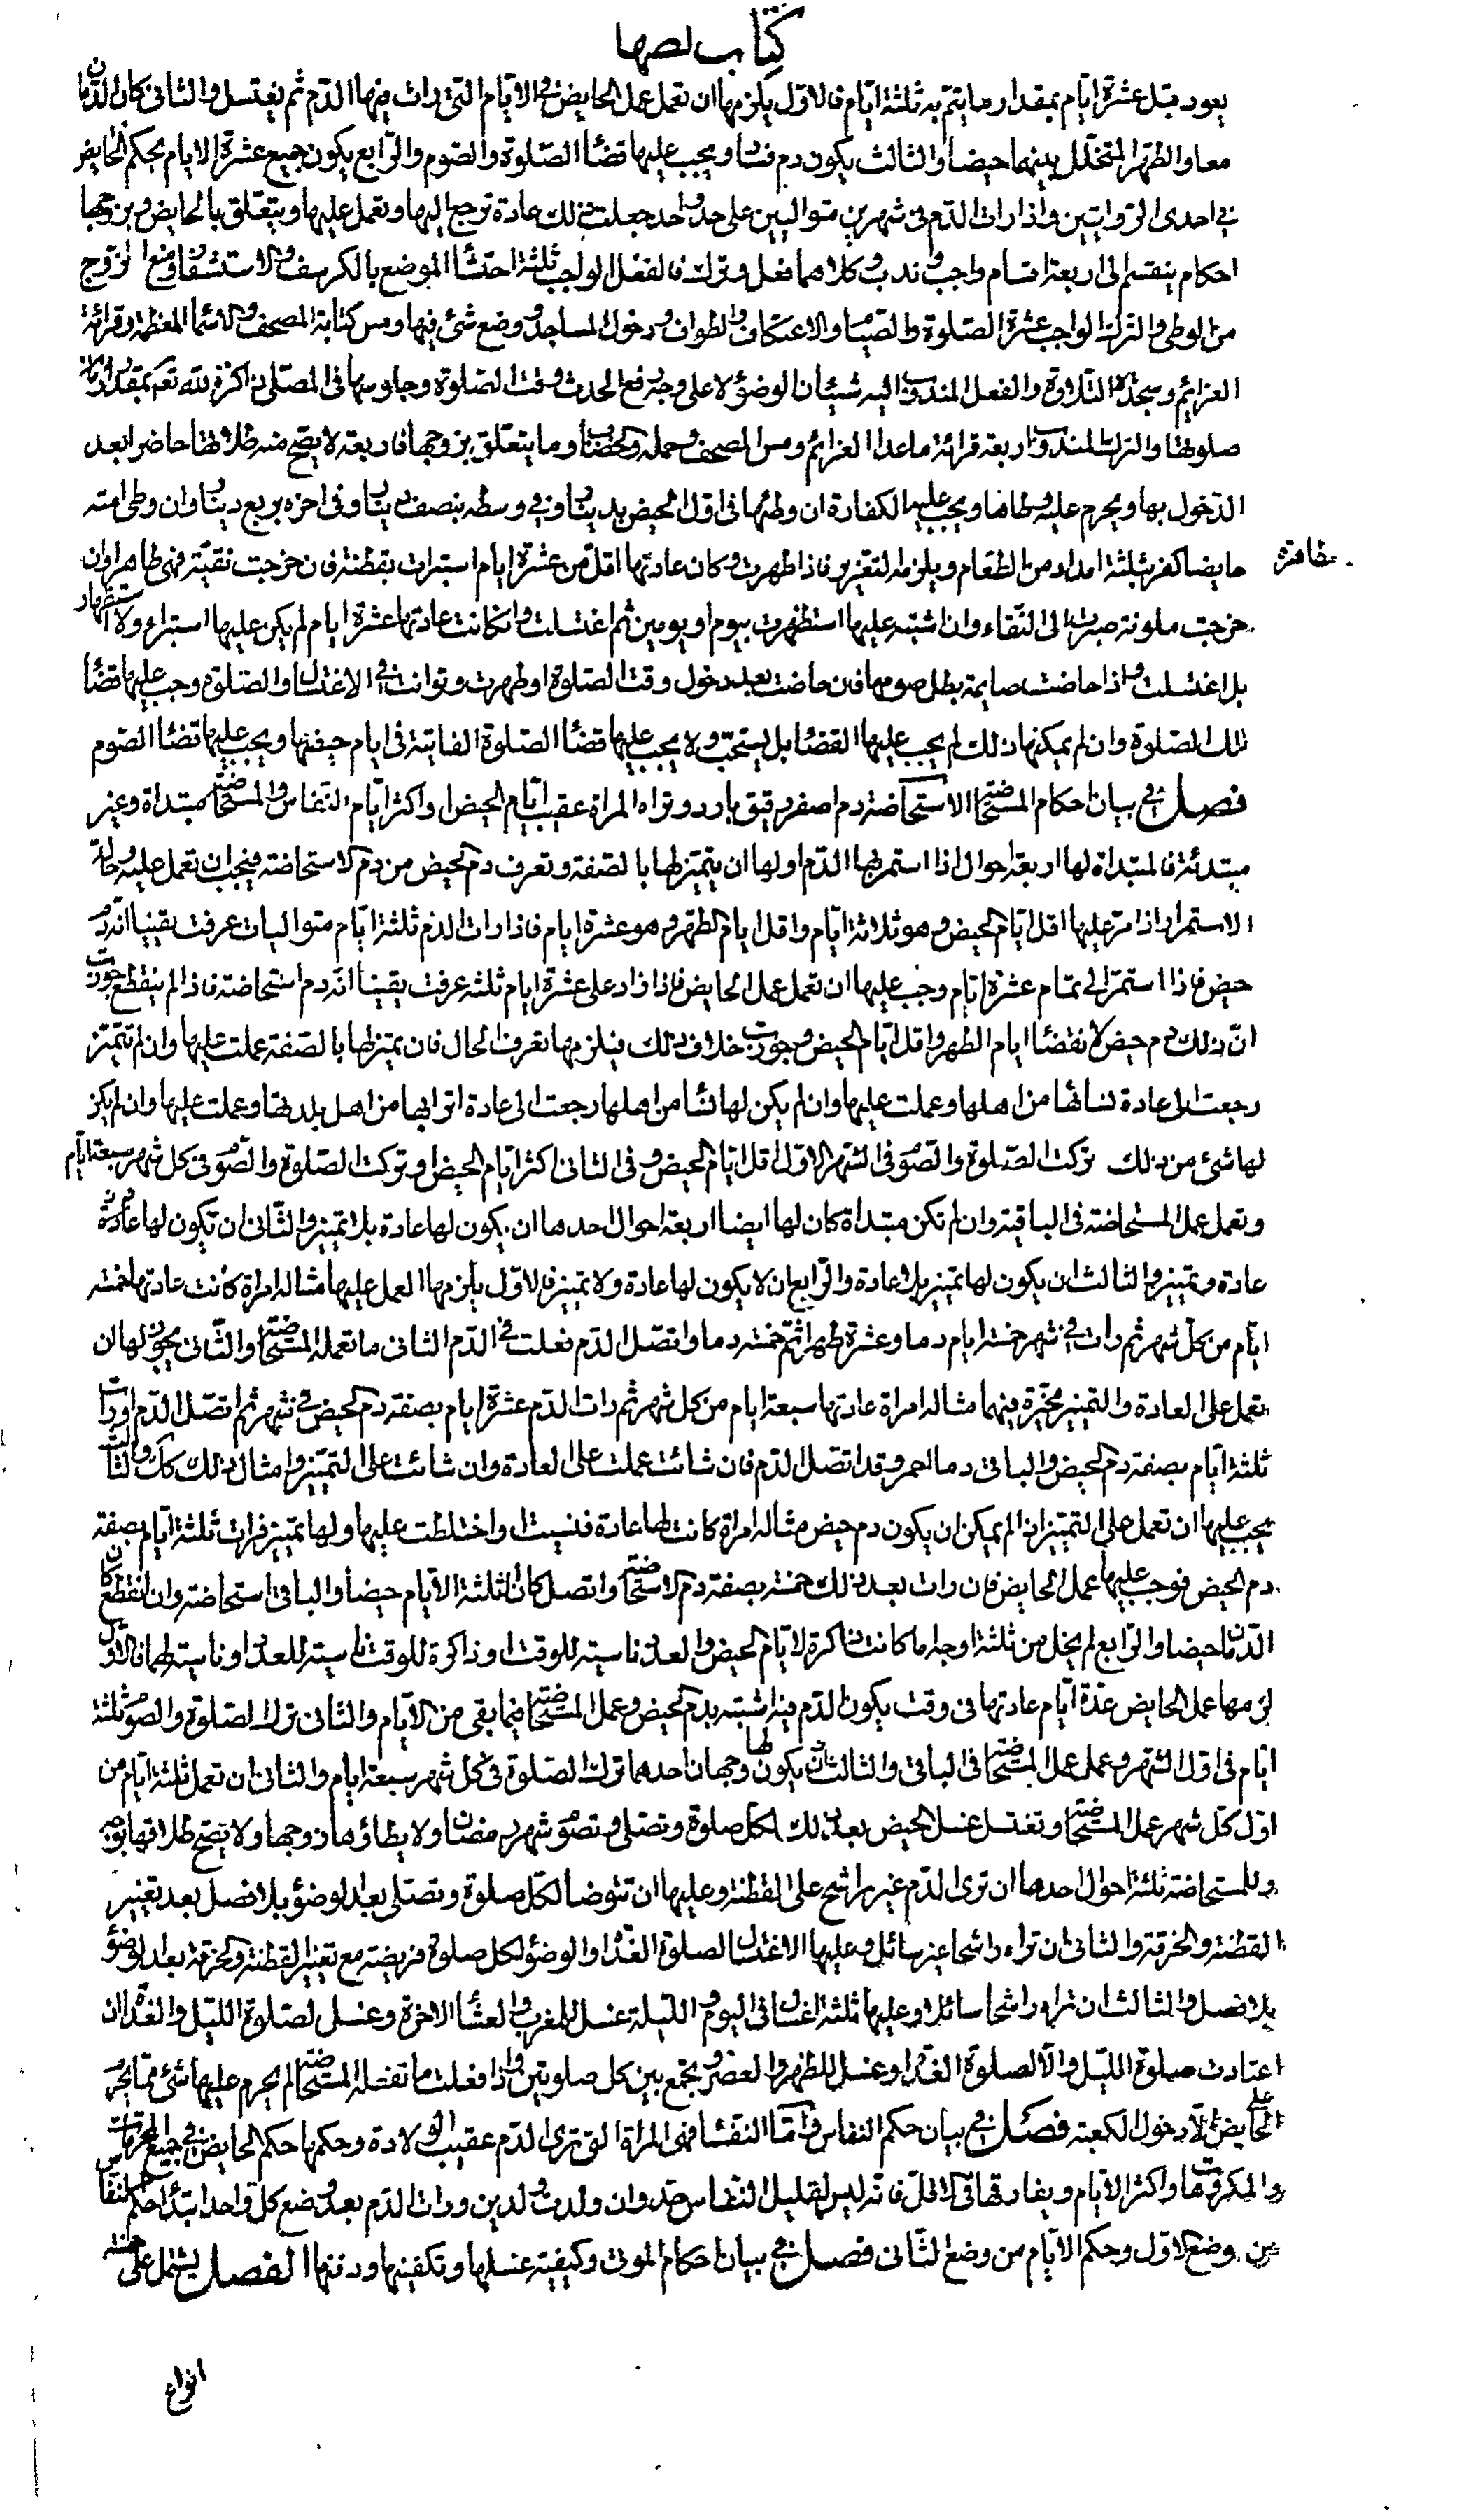 كتاب الصها
يعود قبل عشرة ايام بمقدار ما يتم به ثلثة ايام فالاول يلزمها ان تعمل عمل الحايض في الايام التي رات فيها الدم ثم تغتسل والثاني كان الدمان
معا والطهر المتخلل بينهما حيضا والثالث يكون دم فساد ويجب عليها قضاء الصلوة والصوم والرابع يكون جميع عشرة الايام بحكم الحايض
في احدى الروايتين واذا رات الدم في شهرين متواليين على حد واحد جعلت ذلك عادة ترجع اليها وتعمل عليها ويتعلق بالحايض وبزوجها
احكام ينقسم الى اربعة اقسام واجب وندب وكلاهما فعل وترك فالفعل الواجب ثلثة احتشاء الموضع بالكرسف والاستشفار ومنع الزوج
من الوطي والترك الواجب عشرة الصلوة والصيام والاعتكاف والطواف ودخول المساجد ووضع شئ فيها ومس كتابة المصحف والاسماء المعظمة وقرائة
العزائم وسجدة التلاوة والفعل المندوب اليه شيئان الوضوء لا على وجه رفع الحدث وقت الصلوة وجلوسها في المصلى ذاكرة لله تعالى بمقدار زمان
صلوتها والترك المندوب اربعة قرائة ماعدا العزائم ومس المصحف وحمله والخضاب وما يتعلق بزوجها فاربعة لا يصح منه طلاقها حاضرا بعد
الدخول بها ويحرم عليه وطاها ويجب عليه الكفارة ان وطئها في اول الحيض بدينار وفي وسطه بنصف دينار وفي اخره بربع دينار وان وطي امته
حايضا كفر بثلثة امداد من الطعام ويلزمه التعزير فاذا طهرت وكان عادتها اقل من عشرة ايام استبرات بقطنة فان خرجت نقية فهي طاهرة وان
طاهرة
خرجت ملوثة صبرت الى النقاء وان اشتبه عليها استظهرت بيوم او يومين ثم اغتسلت وان كانت عادتها عشرة ايام لم يكن عليها استبراء ولا استظهار
بل اغتسلت واذا حاضت صايمة بطل صومها فان حاضت بعد دخول وقت الصلوة او طهرت وتوانت في الاغتسال والصلوة وجب عليها قضاء
تلك الصلوة وان لم يمكنها ذلك لم يجب عليها القضاء بل يستحب ولا يجب عليها قضاء الصلوة الفايتة في ايام حيضها ويجب عليها قضاء الصوم
فصل في بيان احكام المستحاضة الاستحاضة دم اصفر رقيق بارد وتراه المراة عقيب ايام الحيض او اكثر ايام النفاس والمستحاضة مبتداة وغير
مبتدئة فالمبتداة لها اربعة احوال اذا استمر بها الدم اولها ان يتميز لها بالصفة وتعرف دم الحيض من دم الاستحاضة فيجب ان تعمل عليه وحالة
الاستمرار اذا مر عليها اقل ايام الحيض وهو ثلاثة ايام واقل ايام الطهر وهو عشرة ايام فاذا رات الدم ثلثة ايام متواليات عرفت يقينا انه دم
حيض فاذا استمر الى تمام عشرة ايام وجب عليها ان تعمل عمل الحايض فاذا زاد على عشرة ايام ثلثة عرفت يقينا انه دم استحاضة فاذا لم ينقطع جوزت
ان ذلك دم حيض لانقضاء ايام الطهر واقل ايام الحيض وجوزت خلاف ذلك فيلزمها تعرف الحال فان يميز لها بالصفة عملت عليها وان لم تتميز
رجعت الى عادة نسائها من اهلها وعملت عليها وان لم يكن لها نساء من اهلها رجعت الى عادة اترابها من اهل بلدها وعملت عليها وان لم يكن
لها شئ من ذلك تركت الصلوة والصوم في الشهر الاول اقل ايام الحيض وفي الثاني اكثر ايام الحيض او تركت الصلوة والصوم في كل شهر سبعة ايام
وتعمل عمل المستحاضة في الباقية وان لم تكن مبتداة كان لها ايضا اربعة احوال احدها ان يكون لها عادة بلا تميز والثاني ان تكون لها
عادة وتميز والثالث ان يكون لها تميز بلا عادة والرابع ان لا يكون لها عادة ولا تميز فالاول يلزمها العمل عليها مثاله امراة كانت عادتها خمسة
ايام من كل شهر ثم رات في شهر خمسة ايام دما وعشرة طهرا ثم خمسة دما واتصل الدم فعلت في الدم الثاني ما تعمله المستحاضة والثاني يجوز لها ان
تعمل على العادة والتميز مخيرة بينهما مثاله امراة عادتها سبعة ايام من كل شهر ثم رات الدم عشرة ايام بصفة دم الحيض في شهر ثم اتصل الدم او رات
ثلثة ايام بصفة دم الحيض والباقي دما احمر وقد اتصل الدم فان شائت عملت على العادة وان شائت على التميز وامثال ذلك كك والثالث
يجب عليها ان تعمل على التميز اذا لم يمكن ان يكون دم حيض مثاله امراة كانت لها عادة فنسيت او اختلطت عليها ولها تميز فرات ثلثة ايام بصفة
دم الحيض فوجب عليها عمل الحايض فان رات بعد ذلك خمسة بصفة دم الاستحاضة واتصل كان الثلثة الايام حيضا والباقي استحاضة وان انقطع كان
الدمان حيضا والرابع لم يخل من ثلثة اوجه اما كانت ذاكرة لايام الحيض والعدد ناسية للوقت او ذاكرة للوقت ناسية للعدد او ناسية لهما فالاول
لزمها عمل الحايض عدة ايام عادتها في وقت يكون الدم فيه اشتبه بدم الحيض وعمل المستحاضة فيما بقي من الايام والثاني ترك الصلوة والصوم ثلثة
ايام في اول الشهر وعمل عمل المستحاضة في الباقي والثالث ان يكون لها وجهان احدهما ترك الصلوة في كل شهر سبعة ايام والثاني ان تعمل ثلثة ايام من
اول كل شهر عمل المستحاضة وتغتسل غسل الحيض بعد ذلك لكل صلوة وتصلى وتصوم شهر رمضان ولا يطاؤها زوجها ولا يصح طلاقها بوجه
وللمستحاضة ثلثة احوال احدها ان ترى الدم غير راشح على القطنة وعليها ان تتوضا لكل صلوة وتصلى بعد الوضوء بلا فصل بعد تغيير
القطنة والخرقة والثاني ان تراه راشحا غير سائل وعليها الاغتسال لصلوة الغداة والوضوء لكل صلوة فريضة مع تغيير القطنة والخرقة بعد الوضوء
بلا فصل والثالث ان تراه راشحا سائلا وعليها ثلثة اغسال في اليوم والليلة غسل للمغرب والعشاء الاخرة وغسل لصلوة الليل والغداة ان
اعتادت صلوة الليل والا لصلوة الغداة وغسل للظهر والعصر وتجمع بين كل صلوتين واذا فعلت ما تفعله المستحاضة لم يحرم عليها شئ مما يحرم
على الحايض الا دخول الكعبة فصل في بيان حكم النفاس واما النفساء فهي المراة التي ترى الدم عقيب الولادة وحكمها حكم الحايض في جميع المحرمات
والمكروهات واكثر الايام ويفارقها في الاقل فانه ليس لقليل النفاس حد وان ولدت ولدين ورات الدم بعد وضع كل واحد ابتداء حكم النفاس
من وضع الاول وحكم الايام من وضع الثاني فصل في بيان احكام الموتى وكيفية غسلها وتكفينها ودفنها الفصل يشتمل على خمسة
انواع